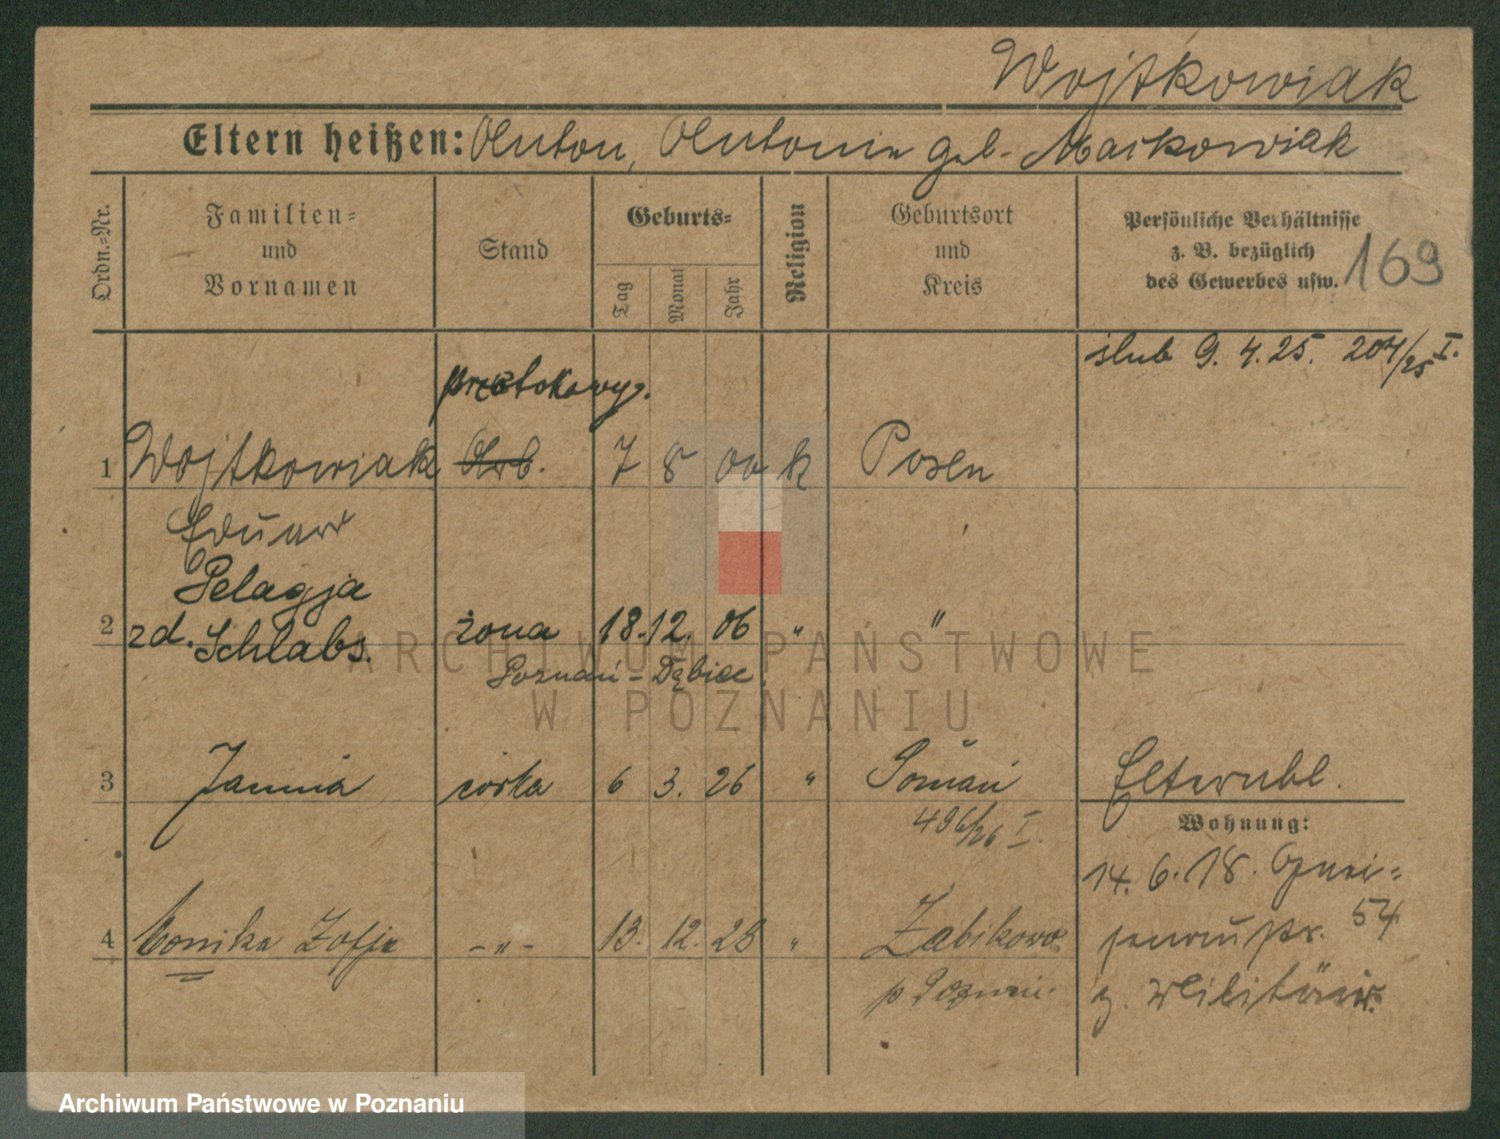 Wojtkowiak
Eltern heißen: Anton, Antonie geb. Markowiak
Ordn.-Nr.
Familien-
und
Vornamen
Stand
Geburts-
Tag
Monat
Jahr
Religion
Geburtsort
und
Kreis
Persönliche Verhältnisse
z. B. bezüglich
des Gewerbes usw.
169
ślub 9. 4. 25. 204/25 I.
1 Wojtkowiak Arb. 7 8 00 k Posen
Eduard
Pelagja
2 zd. Schlabs. żona 18. 12. 06 " "
Poznań - Dębiec.
3 Janina córka 6 3. 26 " Poznań Elternbl.
496/26 I.
Wohnung:
14. 6. 18. Gnei-
senaustr. 54
4 Monika Zofja -"- 13. 12. 28 " Żabikowo
p Poznań.
z. Militär.
ARCHIWUM PAŃSTWOWE
W POZNANIU
Archiwum Państwowe w Poznaniu